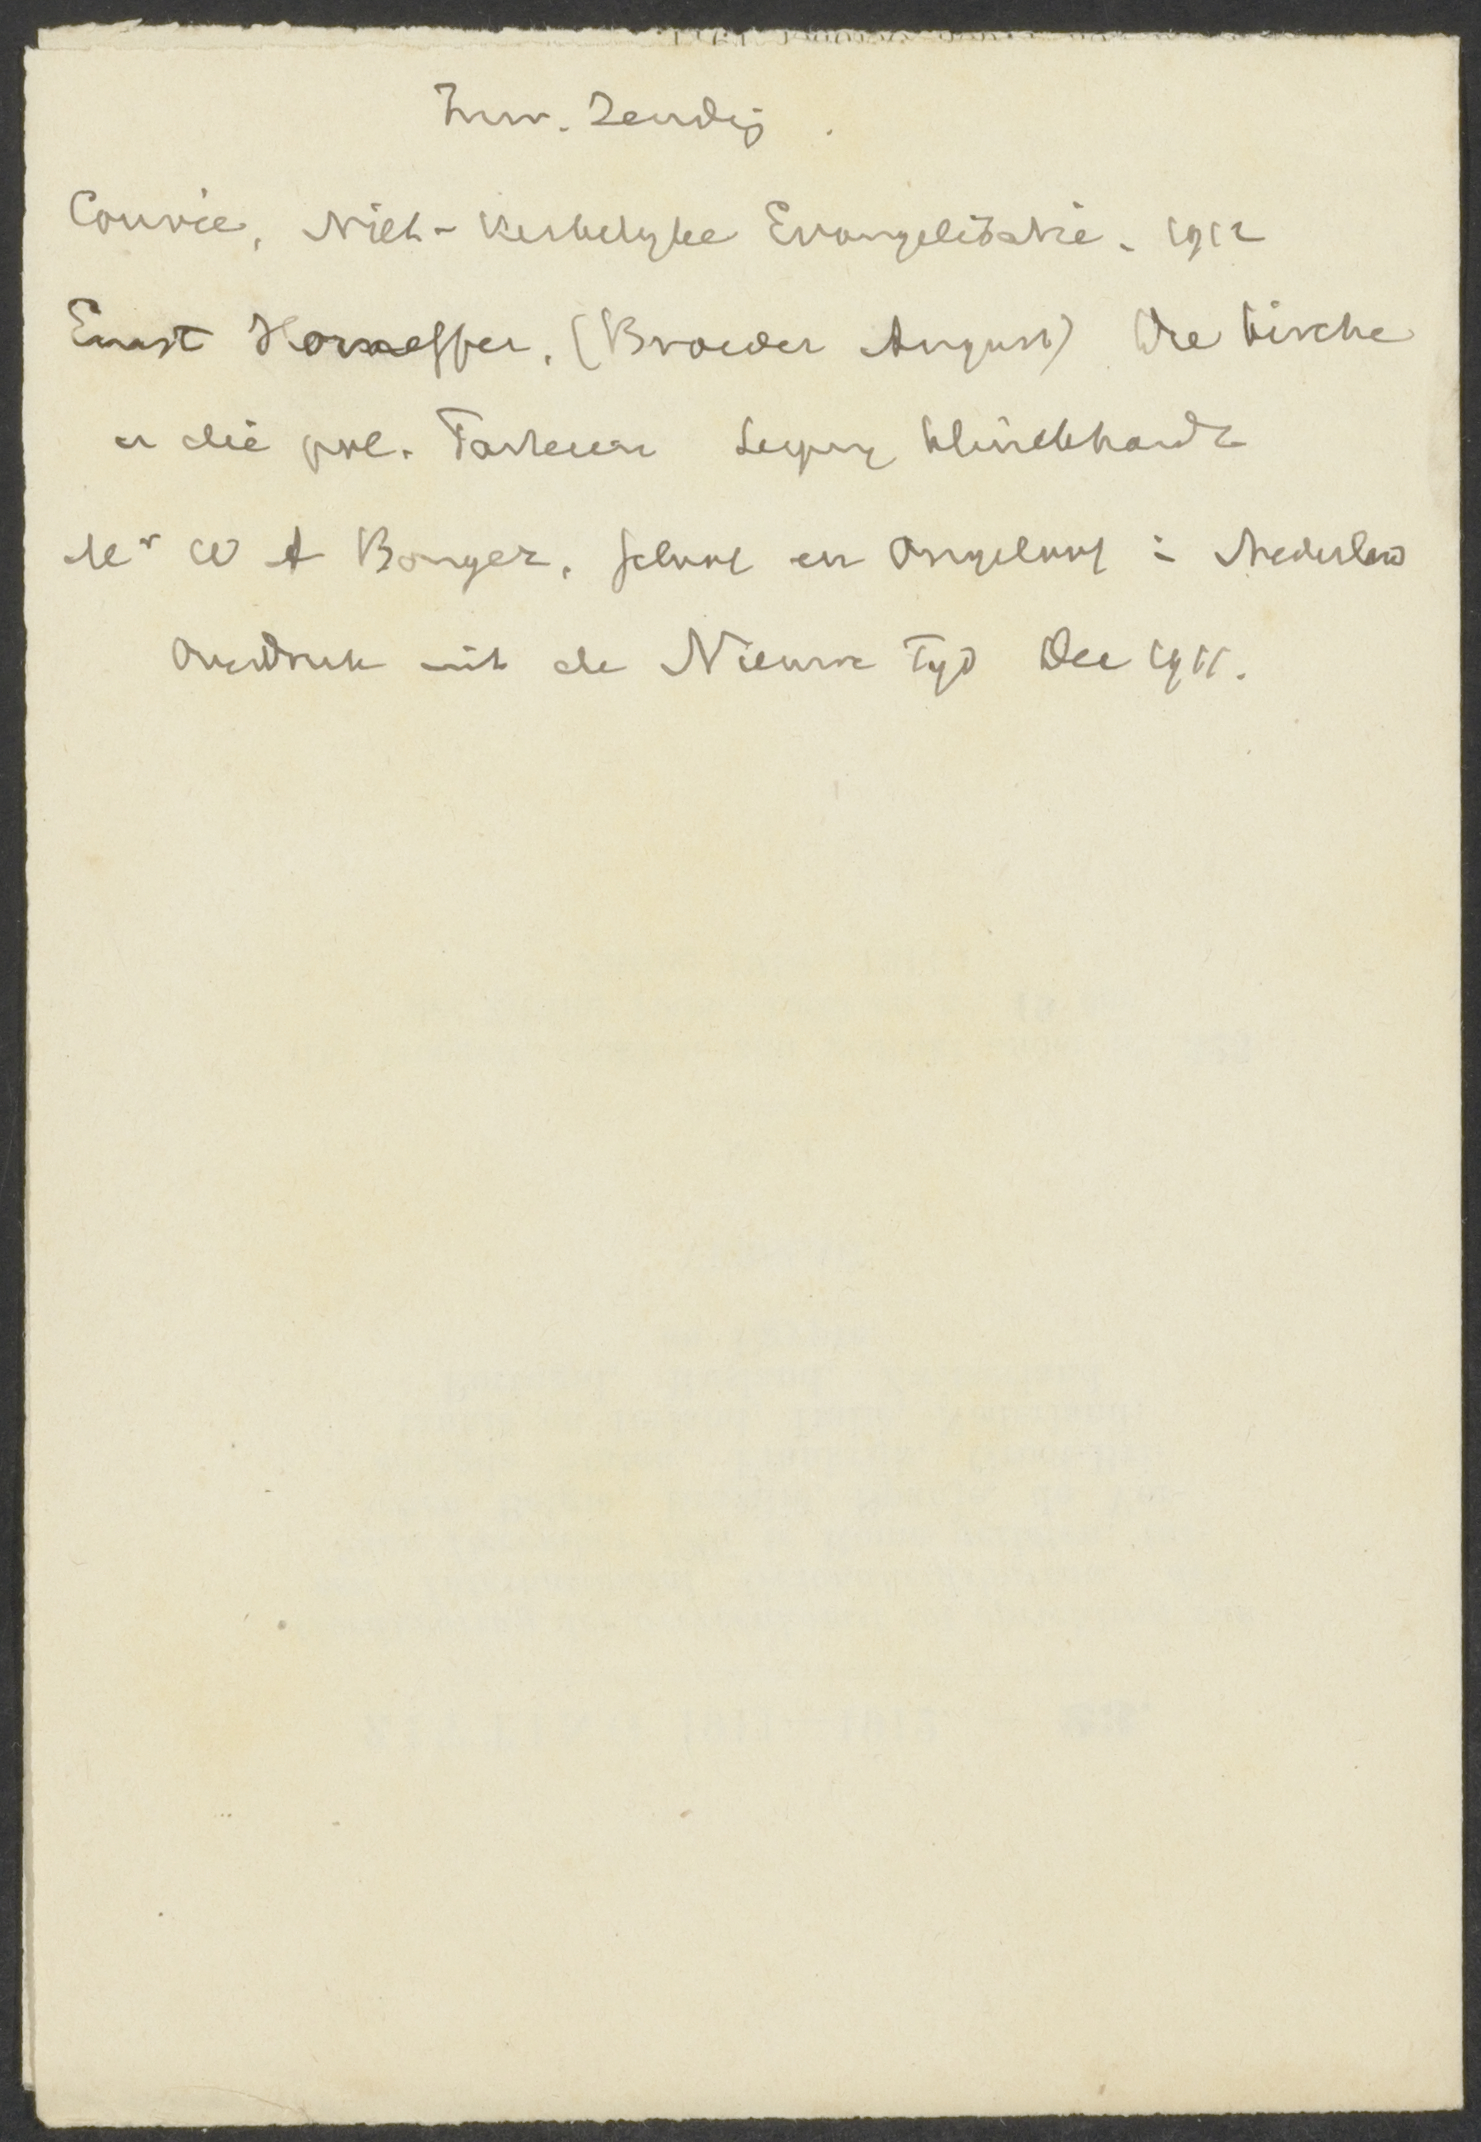 Inw. Zendig
Couvée, Niet-Kerkelyke Evangelisatie. 1912
Ernst Horneffer. (Broeder August) Die Kirche
u die pol. Parteien Leipzig Klinckhardt
Mr W A Bonger. Geloof en Ongeloof i Nederland
Overdruk uit de Nieuwe Tyd Dec 1911.